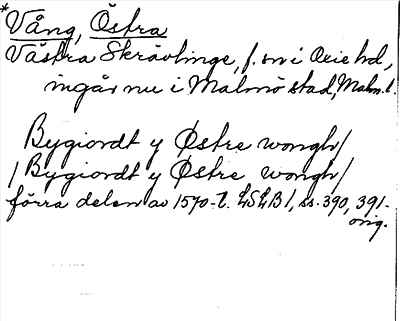 * Vång, Östra
Västra Skrävlinge, f. sn i Oxie hd,
ingår nu i Malmö stad, Malm. l.
Bygiordt y Østre wongh/
/Bygiordt y Østre wongh/
förra delen av 1570-t. LSLB 1, ss. 390, 391.
orig.